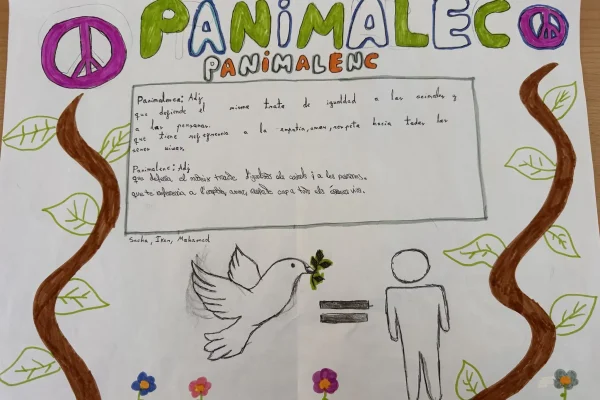 PANiMALEC
PANiMALENC
Panimaleca: Adj,
que defiende el misma trato de igualdad a los animales y
a las personas.
que tiene referencia a la empatia, amor, respeto hacia todos los
seres vivos.
Panimalenc: Adj
que defensa el mateix tracte d'igualtat als animals i a les persones.
que te referencia a l'empatia, amor, respecte cap a tots els éssers vius.
Sacha, Iran, Mohamed